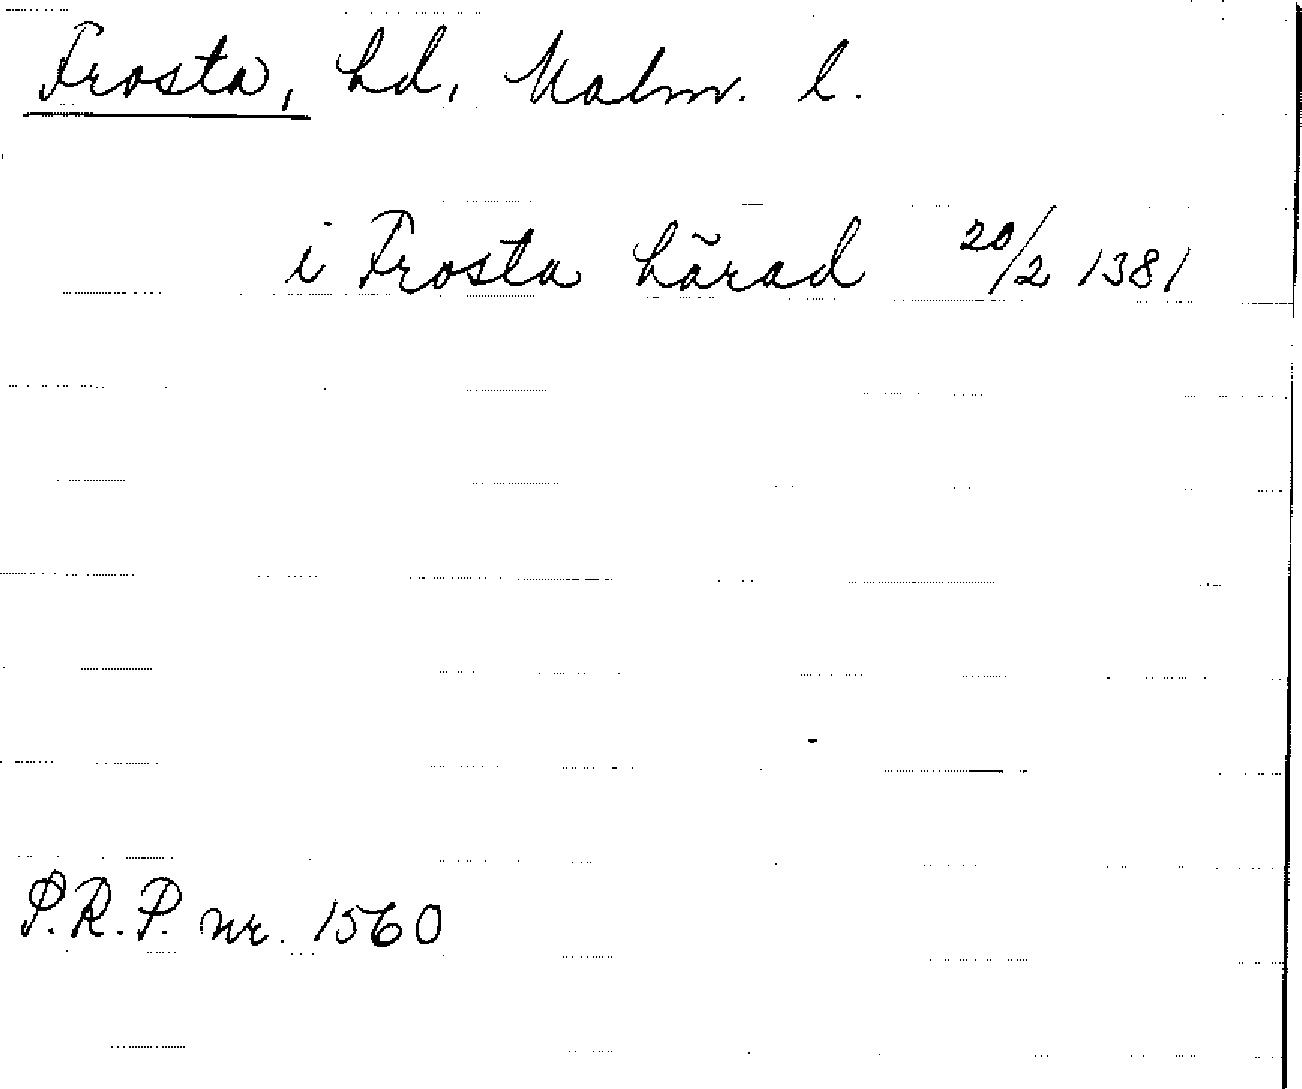 Frosta, hd, Malm. l.
i Frosta härad 20/2 1381
P.R.P. nr. 1560